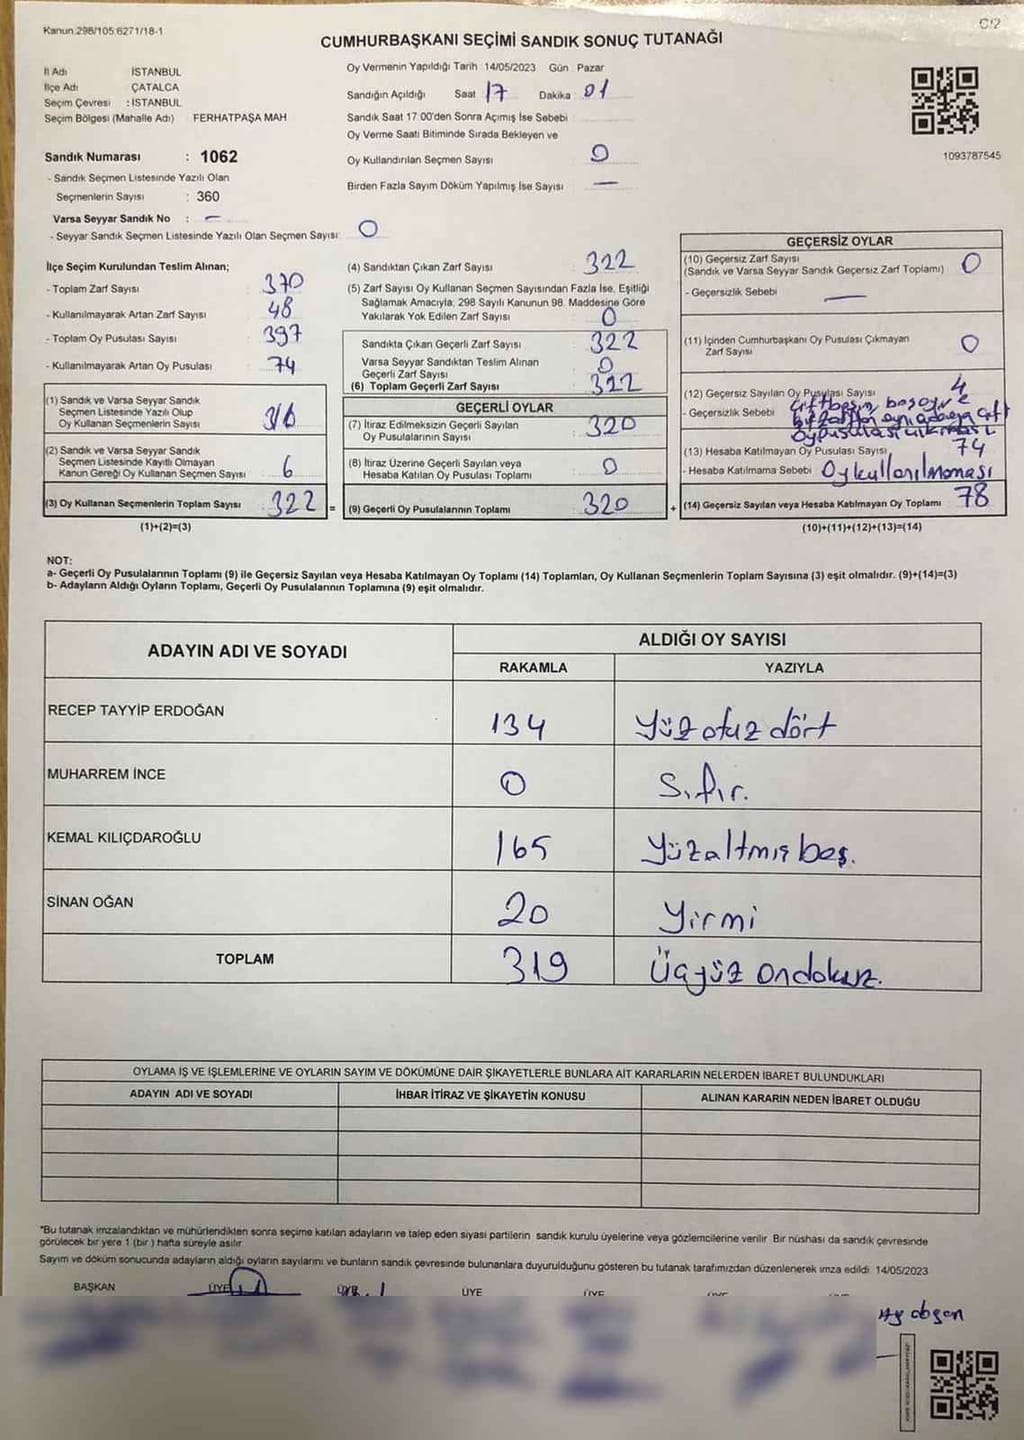 Kanun:298/105:6271/18-1
C/2
CUMHURBAŞKANI SEÇİMİ SANDIK SONUÇ TUTANAĞI
İl Adı İSTANBUL
İlçe Adı ÇATALCA
Seçim Çevresi : İSTANBUL
Seçim Bölgesi (Mahalle Adı) FERHATPAŞA MAH
Sandık Numarası : 1062
- Sandık Seçmen Listesinde Yazılı Olan
Seçmenlerin Sayısı : 360
Varsa Seyyar Sandık No : —
- Seyyar Sandık Seçmen Listesinde Yazılı Olan Seçmen Sayısı: 0
Oy Vermenin Yapıldığı Tarih 14/05/2023 Gün Pazar
Sandığın Açıldığı Saat 17 Dakika 01
Sandık Saat 17.00'den Sonra Açımış İse Sebebi
Oy Verme Saati Bitiminde Sırada Bekleyen ve
Oy Kullandırılan Seçmen Sayısı 0
Birden Fazla Sayım Döküm Yapılmış İse Sayısı —
1093787545
İlçe Seçim Kurulundan Teslim Alınan;
- Toplam Zarf Sayısı 370
- Kullanılmayarak Artan Zarf Sayısı 48
- Toplam Oy Pusulası Sayısı 397
- Kullanılmayarak Artan Oy Pusulası 74
(1) Sandık ve Varsa Seyyar Sandık
Seçmen Listesinde Yazılı Olup
Oy Kullanan Seçmenlerin Sayısı 316
(2) Sandık ve Varsa Seyyar Sandık
Seçmen Listesinde Kayıtlı Olmayan
Kanun Gereği Oy Kullanan Seçmen Sayısı 6
(3) Oy Kullanan Seçmenlerin Toplam Sayısı 322 =
(1)+(2)=(3)
(4) Sandıktan Çıkan Zarf Sayısı 322
(5) Zarf Sayısı Oy Kullanan Seçmen Sayısından Fazla İse, Eşitliği
Sağlamak Amacıyla; 298 Sayılı Kanunun 98. Maddesine Göre
Yakılarak Yok Edilen Zarf Sayısı 0
Sandıkta Çıkan Geçerli Zarf Sayısı 322
Varsa Seyyar Sandıktan Teslim Alınan
Geçerli Zarf Sayısı 0
(6) Toplam Geçerli Zarf Sayısı 322
GEÇERLİ OYLAR
(7) İtiraz Edilmeksizin Geçerli Sayılan
Oy Pusulalarının Sayısı 320
(8) İtiraz Üzerine Geçerli Sayılan veya
Hesaba Katılan Oy Pusulası Toplamı 0
(9) Geçerli Oy Pusulalarının Toplamı 320 +
GEÇERSİZ OYLAR
(10) Geçersiz Zarf Sayısı
(Sandık ve Varsa Seyyar Sandık Geçersiz Zarf Toplamı) 0
- Geçersizlik Sebebi —
(11) İçinden Cumhurbaşkanı Oy Pusulası Çıkmayan
Zarf Sayısı 0
(12) Geçersiz Sayılan Oy Pusulası Sayısı 4
- Geçersizlik Sebebi boş oy ve
çift
oy pusulası çıkması
(13) Hesaba Katılmayan Oy Pusulası Sayısı 74
- Hesaba Katılmama Sebebi Oy kullanılmaması
(14) Geçersiz Sayılan veya Hesaba Katılmayan Oy Toplamı 78
(10)+(11)+(12)+(13)=(14)
NOT:
a- Geçerli Oy Pusulalarının Toplamı (9) ile Geçersiz Sayılan veya Hesaba Katılmayan Oy Toplamı (14) Toplamları, Oy Kullanan Seçmenlerin Toplam Sayısına (3) eşit olmalıdır. (9)+(14)=(3)
b- Adayların Aldığı Oyların Toplamı, Geçerli Oy Pusulalarının Toplamına (9) eşit olmalıdır.
ADAYIN ADI VE SOYADI ALDIĞI OY SAYISI
RAKAMLA YAZIYLA
RECEP TAYYİP ERDOĞAN 134 Yüz otuz dört
MUHARREM İNCE 0 Sıfır.
KEMAL KILIÇDAROĞLU 165 Yüzaltmış beş.
SİNAN OĞAN 20 Yirmi
TOPLAM 319 Üçyüz ondokuz.
OYLAMA İŞ VE İŞLEMLERİNE VE OYLARIN SAYIM VE DÖKÜMÜNE DAİR ŞİKAYETLERLE BUNLARA AİT KARARLARIN NELERDEN İBARET BULUNDUKLARI
ADAYIN ADI VE SOYADI İHBAR İTİRAZ VE ŞİKAYETİN KONUSU ALINAN KARARIN NEDEN İBARET OLDUĞU
*Bu tutanak imzalandıktan ve mühürlendikten sonra seçime katılan adayların ve talep eden siyasi partilerin sandık kurulu üyelerine veya gözlemcilerine verilir. Bir nüshası da sandık çevresinde
görülecek bir yere 1 (bir ) hafta süreyle asılır.
Sayım ve döküm sonucunda adayların aldığı oyların sayılarını ve bunların sandık çevresinde bulunanlara duyurulduğunu gösteren bu tutanak tarafımızdan düzenlenerek imza edildi. 14/05/2023
BAŞKAN ÜYE ÜYE